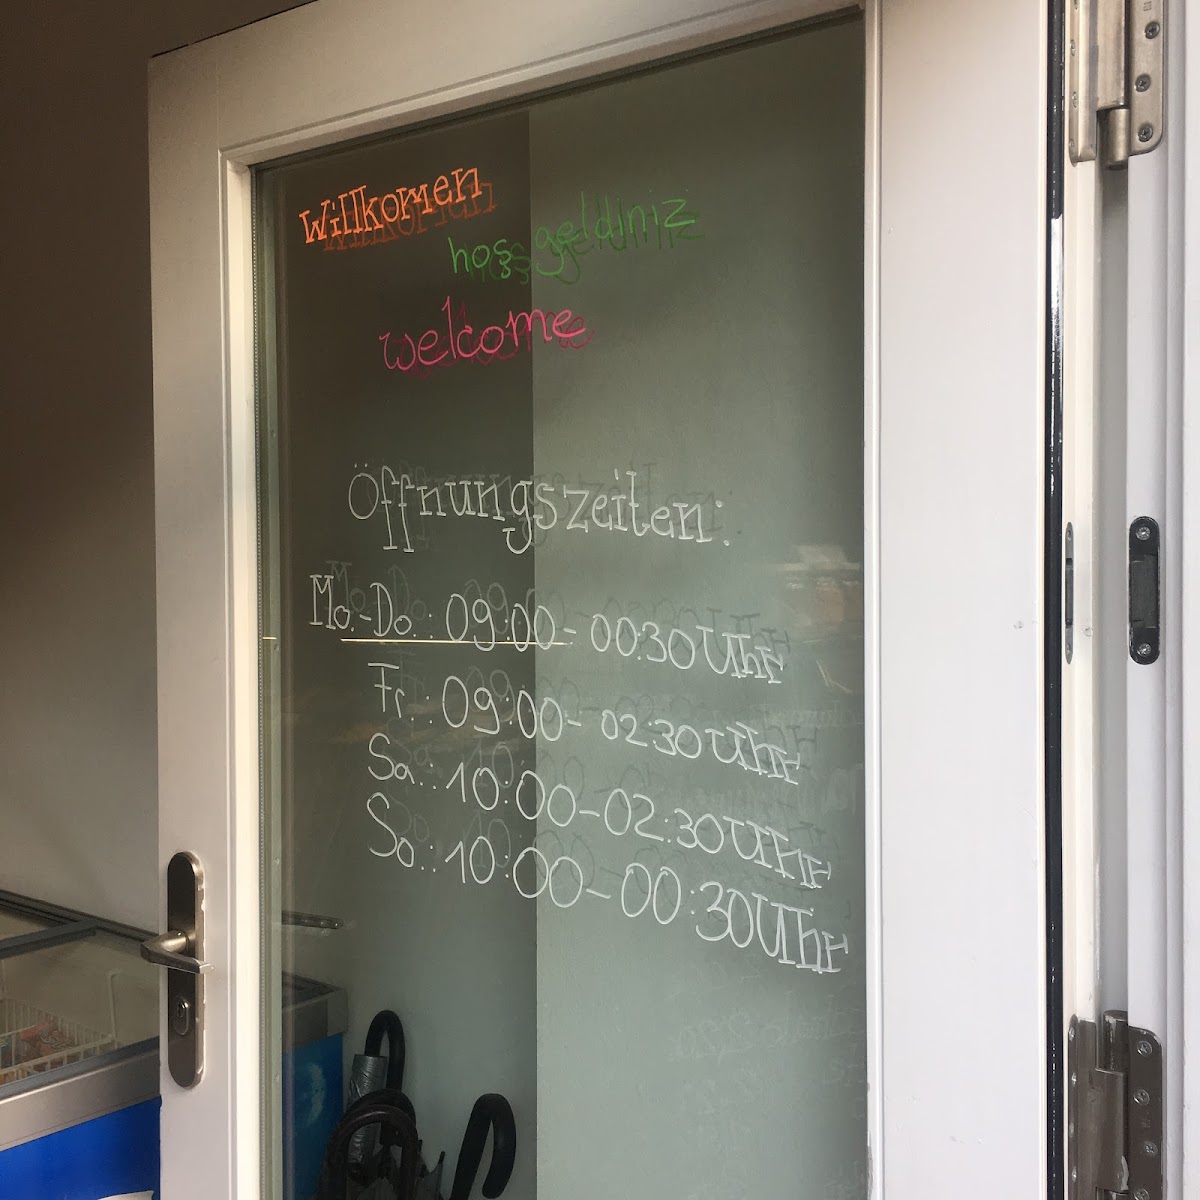 Willkomen
hoş geldiniz
welcome
Öffnungszeiten:
Mo.-Do.: 09:00- 00:30 Uhr
Fr.: 09:00- 02:30 Uhr
Sa.: 10:00-02:30 Uhr
So.: 10:00-00:30 Uhr